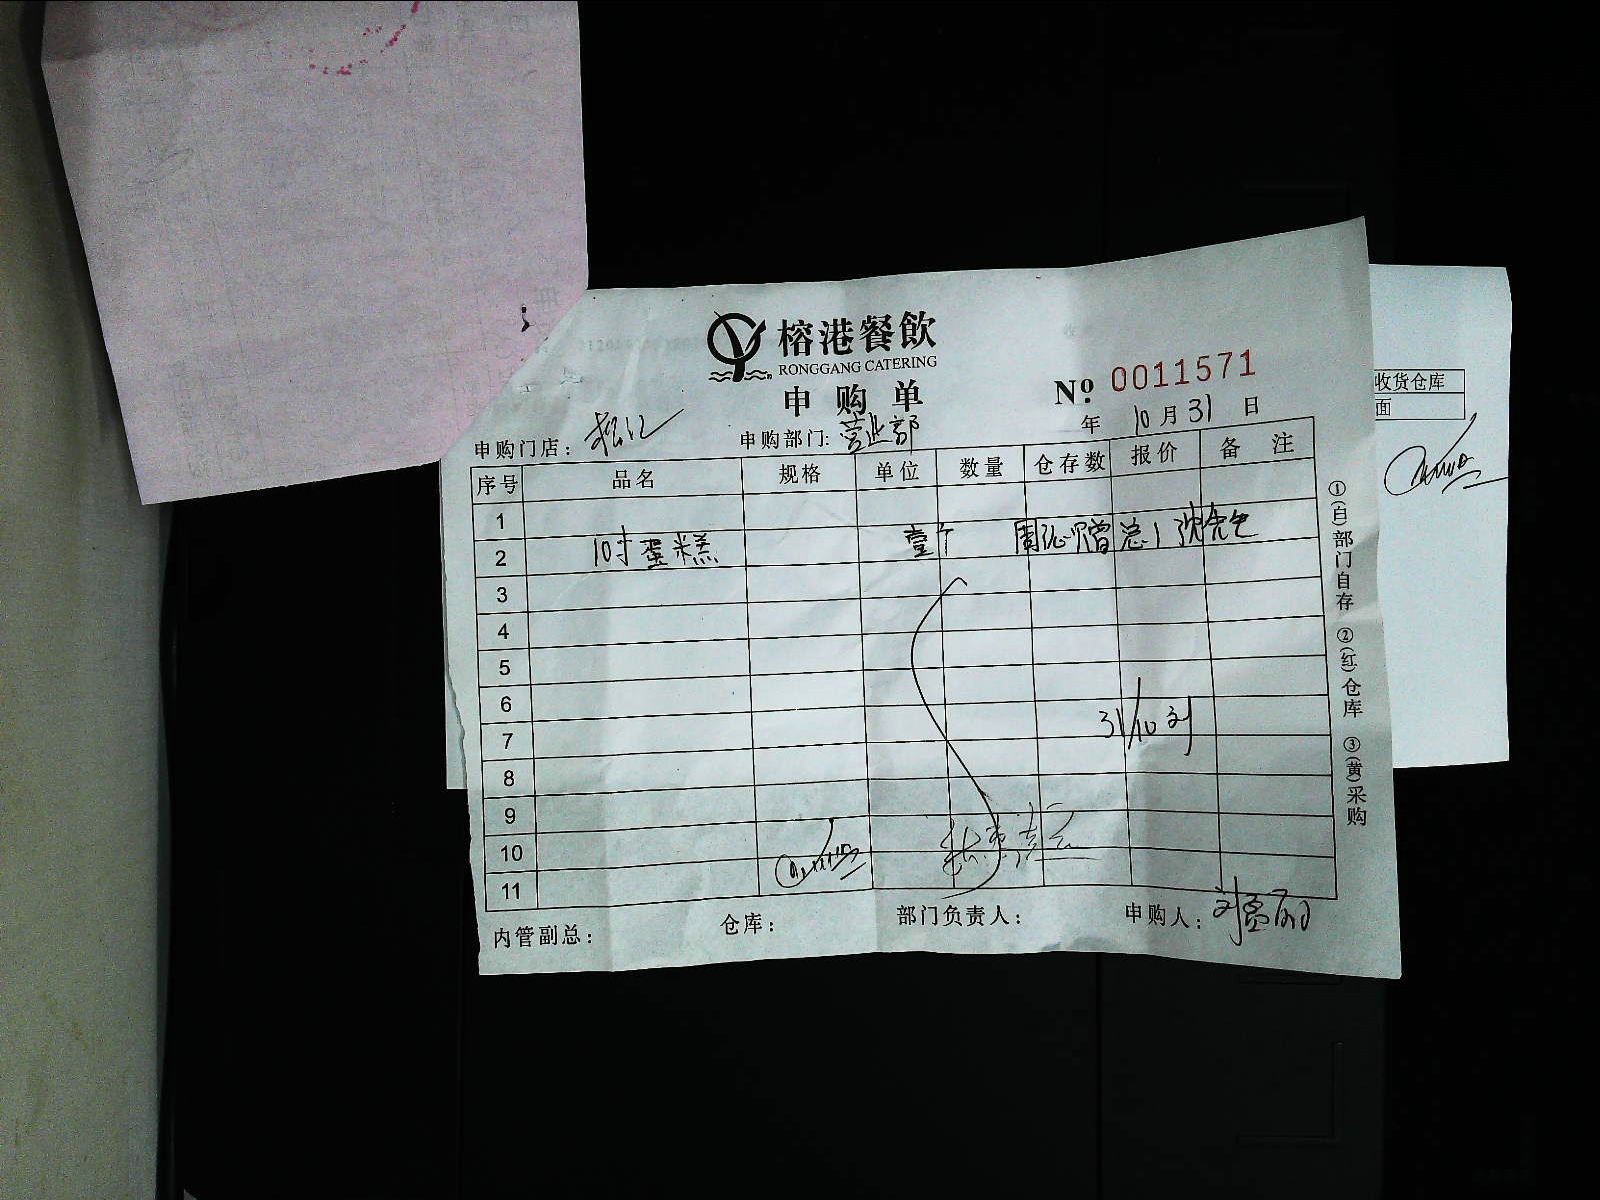 榕港餐飲
RONGGANG CATERING
申购单
№ 0011571
年 10 月 31 日
申购门店：
申购部门: 营业部
序号 品名 规格 单位 数量 仓存数 报价 备注
1
2 10寸蛋糕 壹个
3
4
5
6
7 31/10 刘
8
9
10
11
内管副总： 仓库： 部门负责人： 申购人：
①(白)部门自存 ②(红)仓库 ③(黄)采购
收货仓库
面